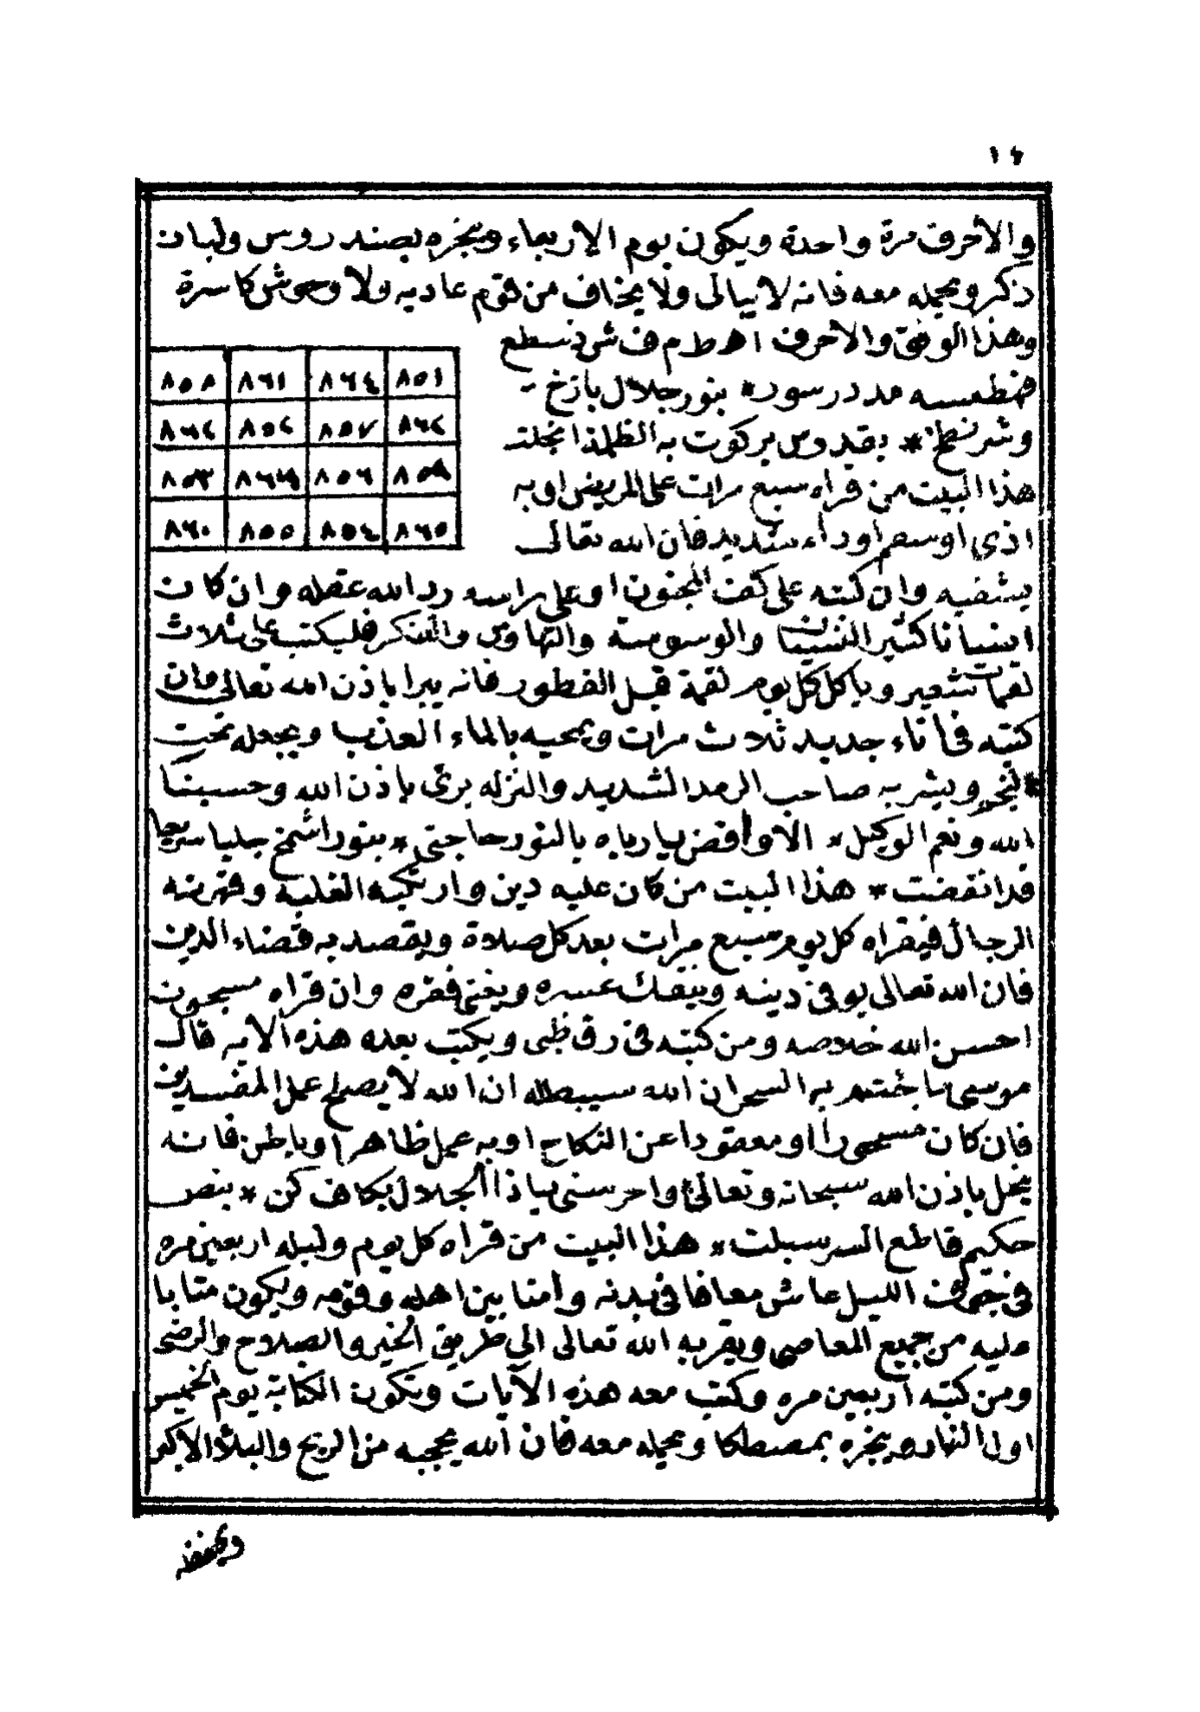 ١٤
والأحرف مرة واحدة ويكون يوم الاربعاء ويبخره بصندروس ولبان
ذكر ويحمله معه فانه لا يبالى ولا يخاف من قوم عاديه ولا وحوش كاسرة
وهذا الوفق والاحرف ا ه ط م ف ش ذ
٨٥١ ٨٦٤ ٨٦١ ٨٥٨
بنور جلال بازخ
٨٦٢ ٨٥٧ ٨٥٢ ٨٦٣
وشرنطخ * بقدوس بركوت به الظلمة انجلت
هذا البيت من قراه سبع مرات على المريض او به
٨٥٩ ٨٥٦ ٨٦٩ ٨٥٣
اذى او سقم او داء شديد فان الله تعالى
٨٦٥ ٨٥٤ ٨٥٥ ٨٦٠
يشفيه وان كتبه على كف المجنون او على راسه رد الله عقله وان كان
انسانا كثير النسيان والوسوسة والتهاوس والفكر فليكتب على ثلاث
لقمات شعير وياكل كل يوم لقمة قبل الفطور فانه يبرا باذن الله تعالى وان
كتبه فى اناء جديد ثلاث مرات ويمحيه بالماء العذب ويجعله تحت
ويشربه صاحب الرمد الشديد والنزله برئ باذن الله وحسبنا
الله ونعم الوكيل * الا واقض يا رباه بالنور حاجتى * بنور اشمخ جليا سريعا
قد انقضت * هذا البيت من كان عليه دين وارتكبه الغلبة وقهرته
الرجال فيقراه كل يوم سبع مرات بعد كل صلاة ويقصد به قضاء الدين
فان الله تعالى يوفى دينه ويفك عسره ويغنى فقره وان قراه مسجون
احسن الله خلاصه ومن كتبه فى رق ظبى ويكتب بعده هذه الايه قال
موسى ما جئتم به السحر ان الله سيبطله ان الله لا يصلح عمل المفسدين
فان كان مسحورا او معقودا عن النكاح او به عمل ظاهر او باطن فانه
يحل باذن الله سبحانه وتعالى واحرسنى ياذا الجلال بكاف كن * بنص
حكيم قاطع السر سبلت * هذا البيت من قراه كل يوم وليله اربعين مره
فى جوف الليل عاش معافا فى بدنه وامنا بين اهله وقومه ويكون متابا
عليه من جميع المعاصى ويقربه الله تعالى الى طريق الخير والصلاح والرضى
ومن كتبه اربعين مره وكتب معه هذه الآيات وتكون الكتابة يوم الخميس
اول النهار ويبخره بمصطكا ويحمله معه فان الله يحجبه من الريح والبلاء الاكبر
ويحفظه